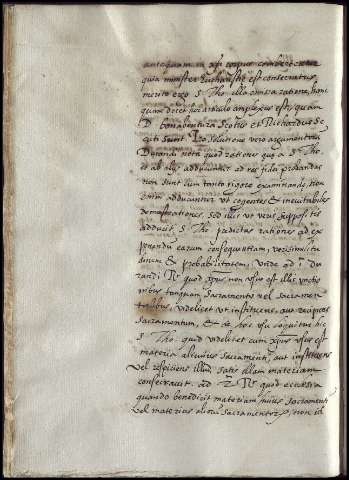 antequam in usu corpus
quia minister Eucharistiæ est consecratus,
merito ergo S. Tho. illa omissa ratione, hanc
quam docet hic articulo amplexus est, quam
D. bonaventura Scotus et Richardus Se
cuti sunt. Pro solutione vero argumentorum
Durandi nota quod rationes quas S. Tho.
et ab alijs adducuntur ad res fidei probandas
non sunt cum tanto rigore examinandæ, non
enim adducuntur ut cogentes & inevitabiles
demonstrationes. sed illis ut veris suppositis
adducit S. Tho. prædictas rationes ad ex
plicandum earum consequentiam, verisimilitu
dinem & probabilitatem, Unde ad 1. du
randi Rs. quod xpus non usus est illis unctio
nibus tanquam Sacramentis vel Sacramen
talibus, videlicet ut instituens, aut recipiens
sacramentum, & de hoc usu loquitur hic
S. Tho. quod videlicet cum xpus usus est
materia alicuius Sacramenti, aut instituens
vel respiciens illud, satis illam materiam
consecravit. ad 2. Rs. quod ecclesia
quando benedicit materiam huius sacramenti
vel materias aliorum Sacramentorum, non id